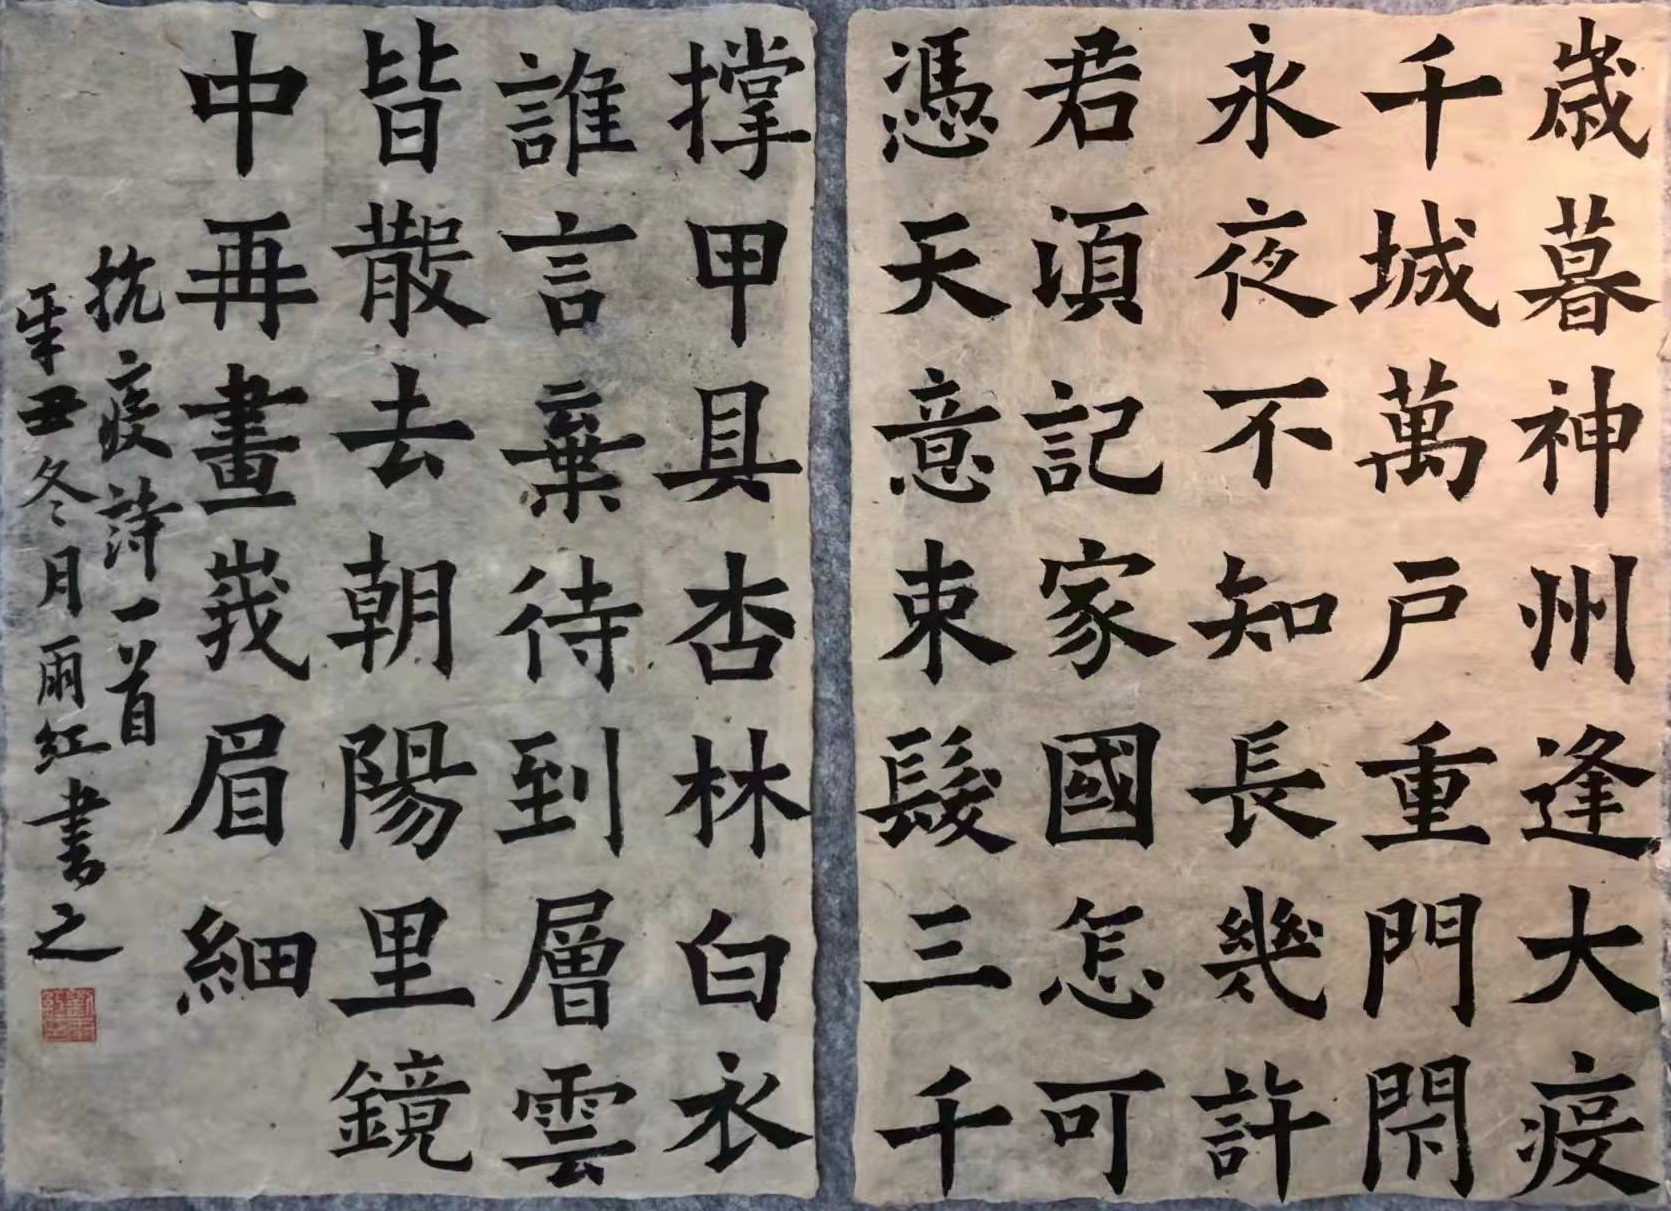 歲暮神州逢大疫
千城萬戶重門閇
永夜不知長幾許
君須記家國怎可
憑天意束髮三千
撐甲具杏林白衣
誰言棄待到層雲
皆散去朝陽里鏡
中再畫峩眉細
抗疫詩一首
辛丑冬月雨紅書之